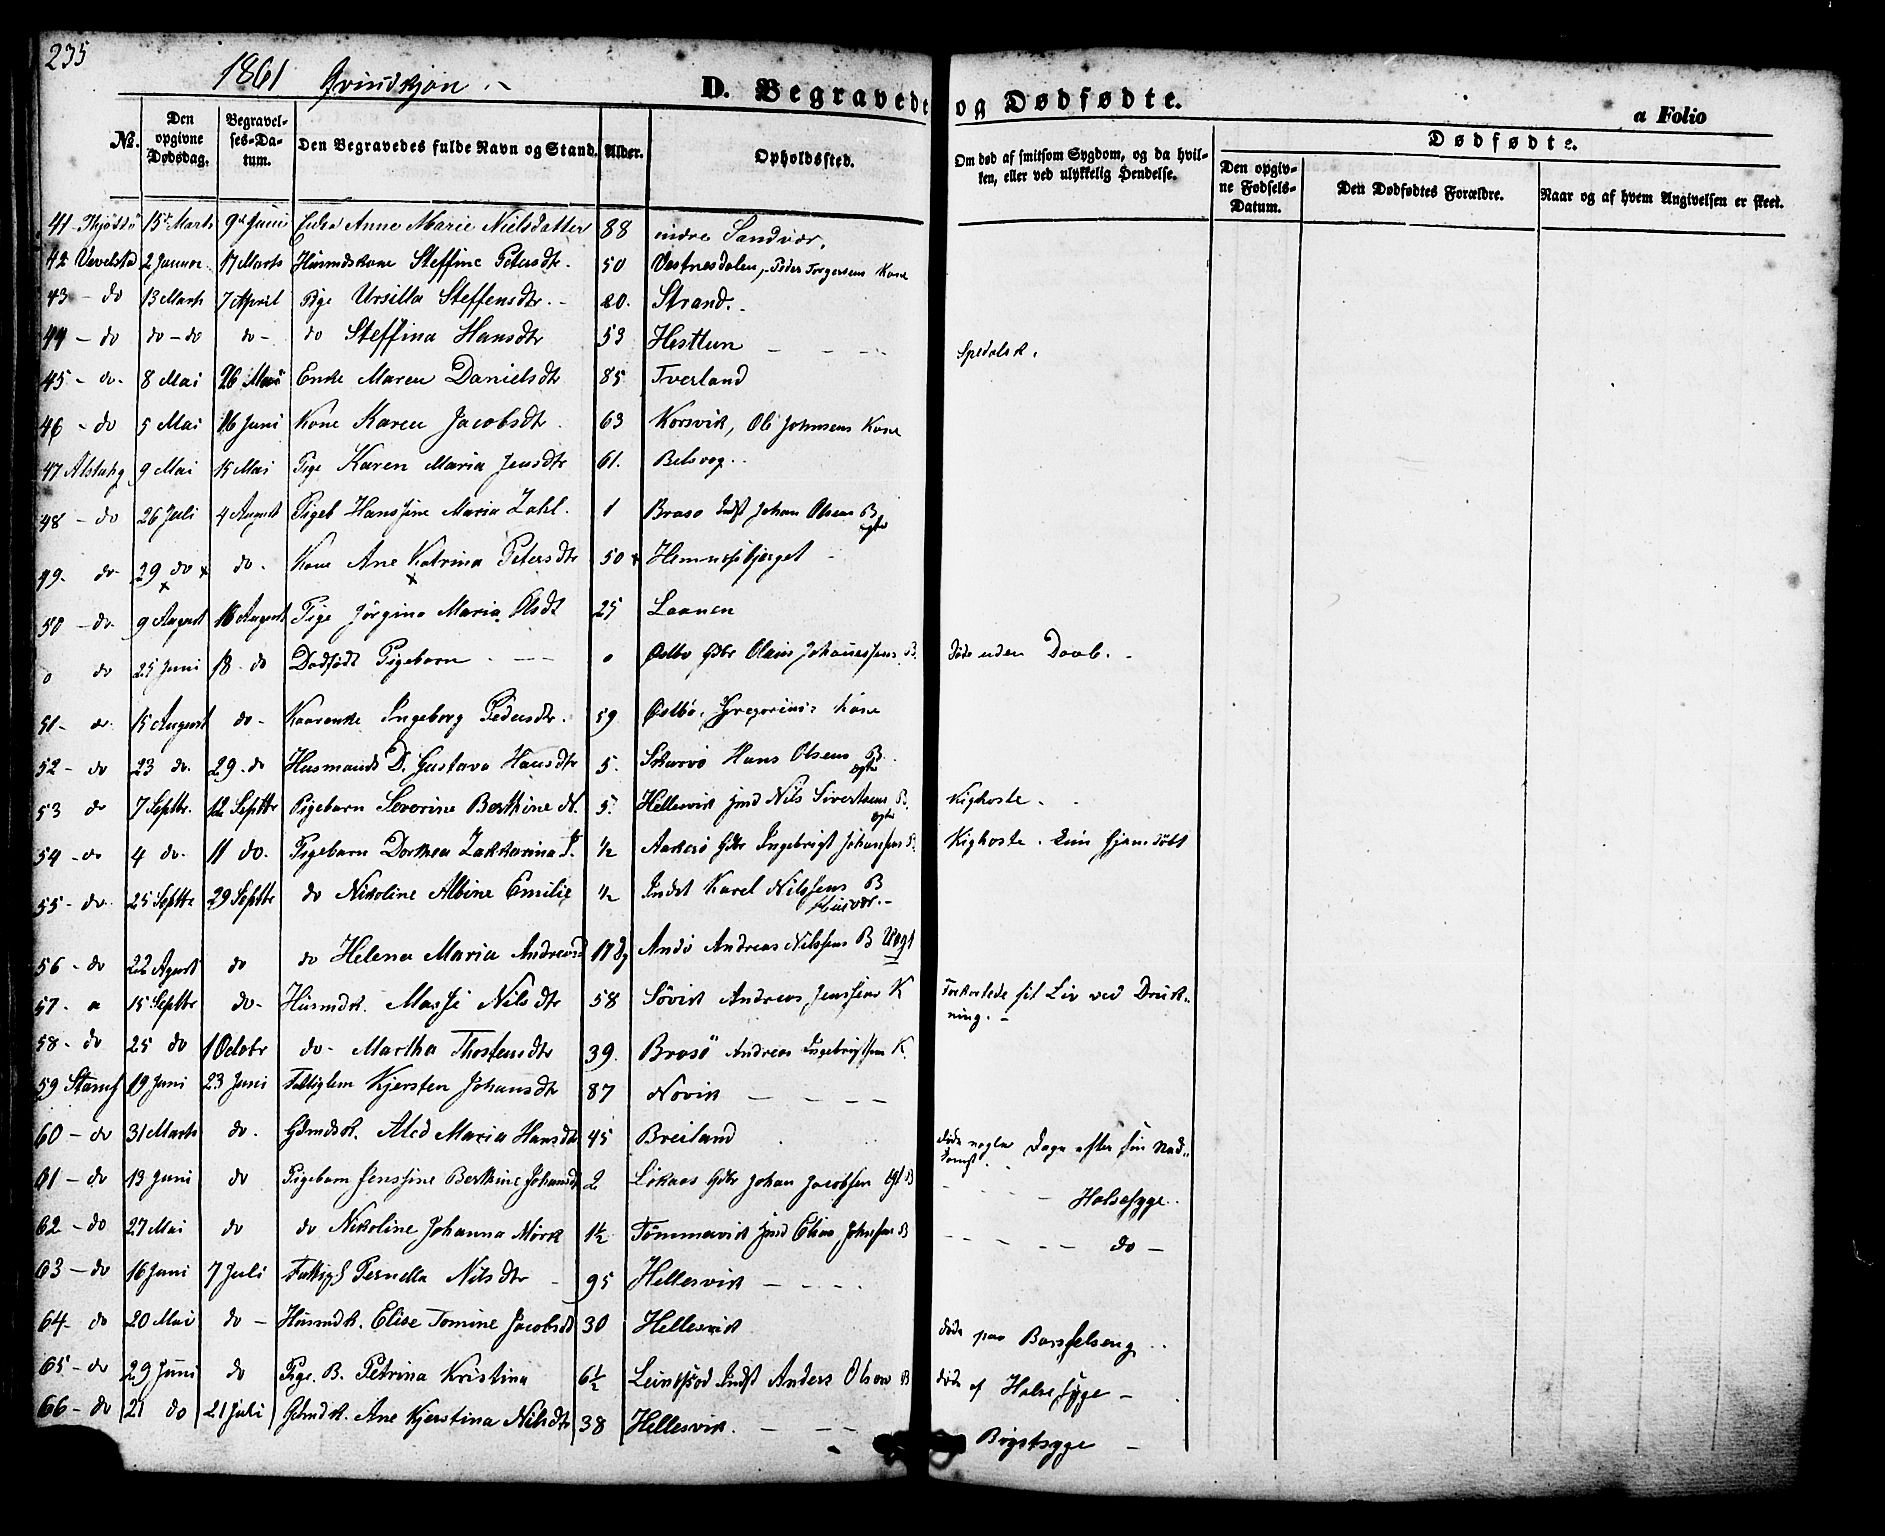 235
1861 Qvindkjøn
D. Begravede og Dødfødte.
a Folio
No. Den opgivne Dødsdag. Begravelses-Datum. Den Begravedes fulde Navn og Stand. Alder. Opholdssted. Om død af smitsom Sygdom, og da hvilken, eller ved ulykkelig Hendelse. Dødfødte. Den opgivne Fødsels-Datum. Den Dødfødtes Forældre. Naar og af hvem Angivelsen er skeet.
41 - Thjøttø 15de Marts 9de Juni Enke Anne Marie Nielsdatter 88 indre Sandvær.
42 Vevelstad 2 Januar 17 Marts Huusmdskone Steffine Petersdtr. 50 Vestnesdalen, Peder Torgersens Kone
43 - do 13 Marts 7 April Pige Ursilla Steffensdtr. - 20. Strand. -
44 - do do - do do - do Steffina Hansdtr 53 Hesttun - - - Spedalsk.
45 - do - 8 Mai 26 Mai Enke Maren Danielsdtr 85 Tverland
46 - do 5 Mai 16 Juni Kone Karen Jacobsdtr. 63 Korsvik, Ole Johnsens Kone
47 Alstahg 9 Mai 15 Mai Pige Karen Maria Jensdtr 61. Belsvog.
48 - do 26 Juli 4 August Pigeb Hanssine Maria Zahl. 1 Brasø Indst Johan Olsens B ægte
49 - do 29 do x do - Kone Ane Katrina Petersdtr 50 x Hemnesbjerget -
50 - do 9 August 16 August Pige Jørgine Maria Olsdt 25 Laanen
o do 25 Juni 18 - do Dødfødt Pigebarn - - - o Østbø Gdbr Johannessens B. døde uden Daab. -
51 - do 15 August do - Kaarenke Ingeborg Pedersdtr. 59 Østbø, Gregorius's Kone
52 - do 23 do. 29 - do Husmands D. Gustava Hansdtr 5. Hans Olsens B. ægte
53 do 7 Septbr. 12 Septbr Pigebarn Severine Berthine N. 5. Hellesvik Ind Nils Sivertsens B. ægte Kighoste.
54 - do 4 do. 11 do. Pigebarn Dorthea Zakkarina I. ½ Aakerø Gdbr Ingebrigt Johansens B. Kighoste. kun hjemdøbt
55 - do 25 Septbr 29 Septbr do Nikoline Albine Emilie ½ Indst Karel Nilssens B Husvær. -
56 - do 22 Agust do do Helena Maria Andreasd 17 Dg Andø Andreas Nilssens B Uægt
57 - a 15 Septbr do - Husmdk. Massi Nilsdtr 58 Søvik Andreas Jenssens K Forkortede sit Liv ved Drukning. -
58 - do 25 do 1 Octobr do - Martha Thostensdtr 39. Brasø Andreas Ingebrigtsens K.
59 Stamf 19 Juni 23 Juni Fattiglem Kjersten Johansdtr 87 Novik - - - -
60 - do 31 Marts do. Gdmdsk. Aled Maria Hansdt 45 Breiland døde nogle Dage efter sin Nedkomst.
61 - do 13 Juni do Pigebarn Jenssine Berthine Johansdt 2 Løkaas Gdbr Johan Jacobsen Ægt B - - - - Halsesyge.
62 - do 27 Mai do do Nikoline Johanna Mørk 1½ Tømmervik Ind Elias Johnsens B - - - - do -
63 - do 16 Juni 7 Juli Fattigl Pernella Nilsdtr - 95 Hellesvik - - - -
64 - do 20 Mai do - Husmdk. Elise Tomine Jacobsdt 30 Hellesvik døde paa Barselseng
65 - do 29 Juni do Pige. B. Petrina Kristina 6½ Indst Anders Olsens B døde af Halsesyge -
66 - do 21 do 21 Juli Gdmdk. Ane Kjerstina Nilsdtr 38 Hellesvik. - - - Brystsyge -